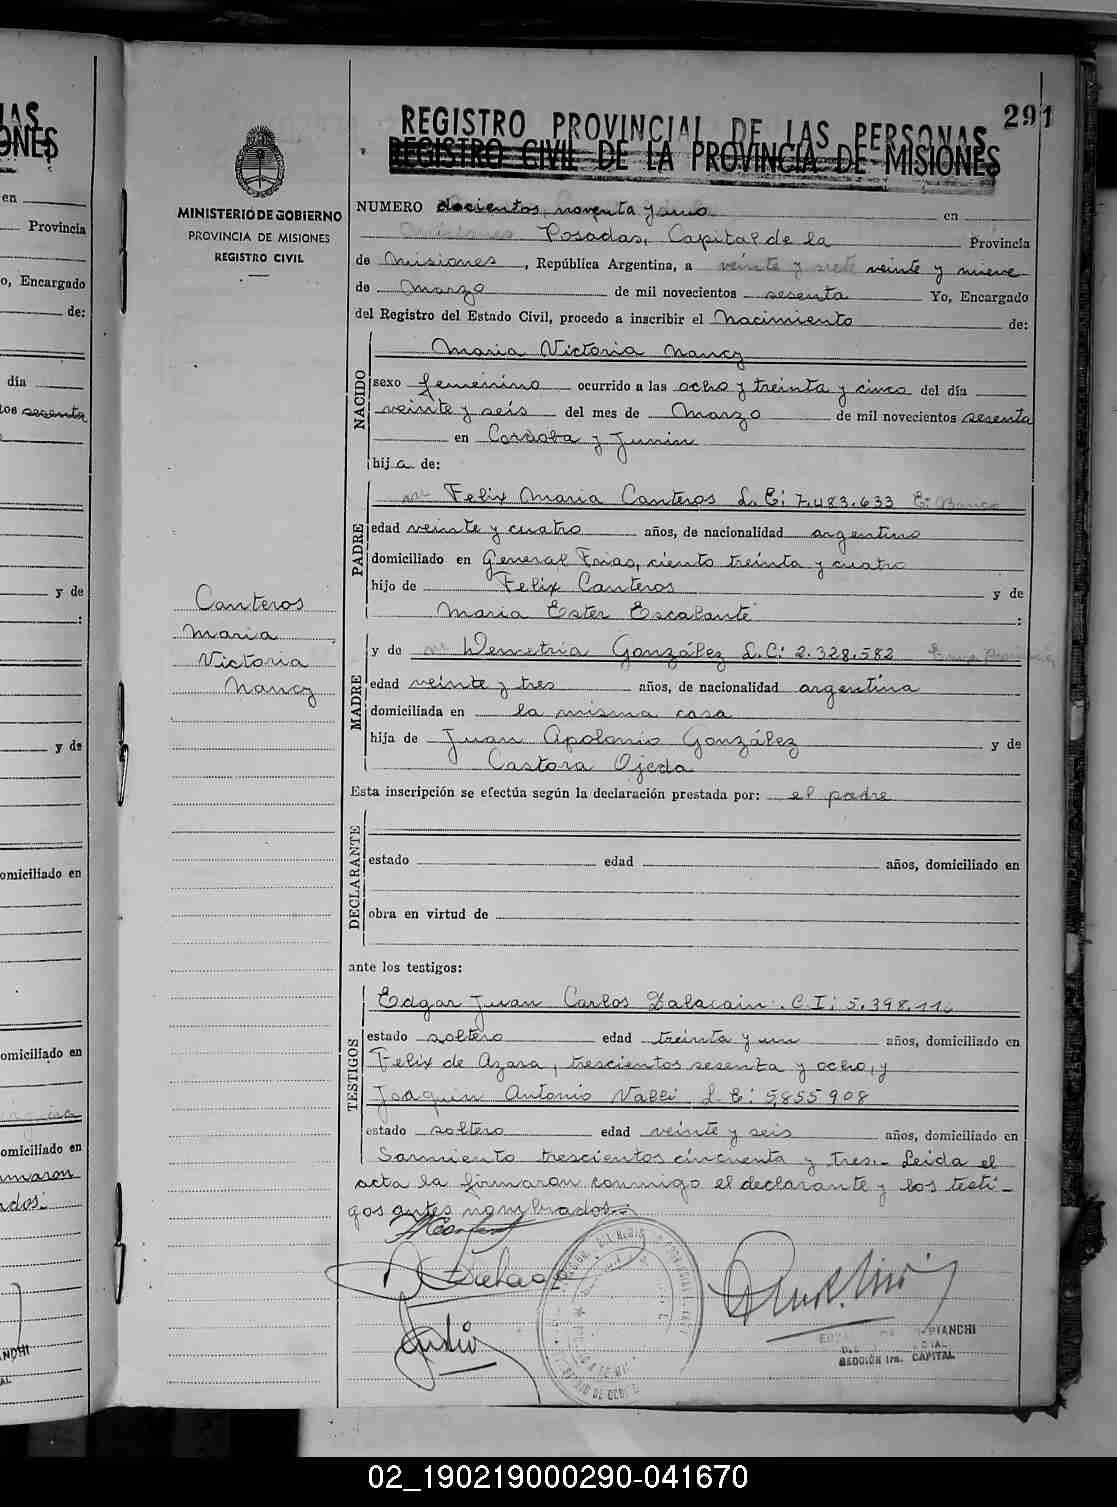 291
REGISTRO PROVINCIAL DE LAS PERSONAS
REGISTRO CIVIL DE LA PROVINCIA DE MISIONES
MINISTERIO DE GOBIERNO
PROVINCIA DE MISIONES
REGISTRO CIVIL
NUMERO docientos noventa y uno en
Misiones Posadas, Capital de la Provincia
de Misiones, República Argentina, a veinte y siete veinte y nueve
de Marzo de mil novecientos sesenta Yo, Encargado
del Registro del Estado Civil, procedo a inscribir el Nacimiento de:
NACIDO
Maria Victoria Nancy
sexo femenino ocurrido a las ocho y treinta y cinco del día
veinte y seis del mes de Marzo de mil novecientos sesenta
en Cordoba y Junin
hija de:
PADRE
Felix Maria Canteros L.E: 7.483.633
edad veinte y cuatro años, de nacionalidad argentino
domiciliado en General Frias, ciento treinta y cuatro
hijo de Felix Canteros y de
Maria Ester Escalante :
Canteros
Maria
Victoria
Nancy
MADRE
y de Demetria González L.C: 2.328.582
edad veinte y tres años, de nacionalidad argentina
domiciliada en la misma casa
hija de Juan Apolonio González y de
Castora Ojeda
Esta inscripción se efectúa según la declaración prestada por: el padre
DECLARANTE
estado edad años, domiciliado en
obra en virtud de
ante los testigos:
TESTIGOS
Edgar Juan Carlos Dalacain. C.I: 5.398.11
estado soltero edad treinta y un años, domiciliado en
Felix de Azara, trescientos sesenta y ocho, y
Joaquin Antonio Valli L.E: 5.855.908
estado soltero edad veinte y seis años, domiciliado en
Sarmiento trescientos cincuenta y tres.- Leida el
acta la firmaron conmigo el declarante y los testi-
gos antes nombrados.-
BIANCHI
SECCIÓN 1ra. CAPITAL
02_190219000290-041670